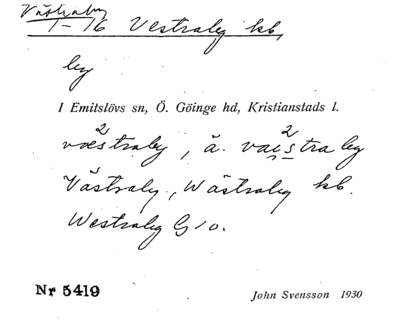 Västraby
1-16 Vestraby kb,
by
I Emitslövs sn, Ö. Göinge hd, Kristianstads l.
væ²straby, ä. vai²straby
Västraby, Wästraby kb.
Westraby G 10.
Nr 5419
John Svensson 1930